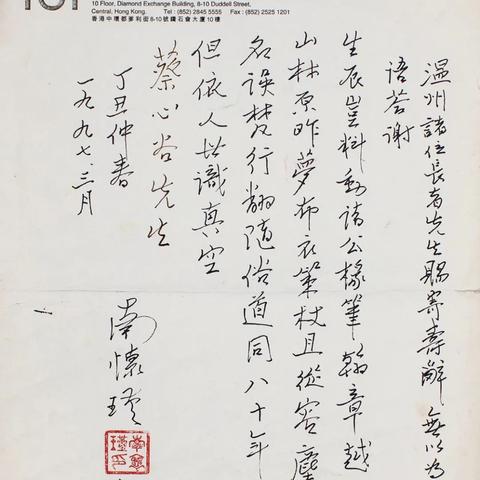 10 Floor, Diamond Exchange Building, 8-10 Duddell Street,
Central, Hong Kong. Tel : (852) 2845 5555 Fax : (852) 2525 1201
香港中環都爹利街8-10號鑽石會大廈10樓
溫州諸位長者先生賜寄壽辭無以為
語荅謝
生辰豈料動諸公椽筆翰章越
山林原昨夢布衣策杖且從容塵
名誤行翻隨俗道同八十年
但依人識真空
蔡心谷先生
丁丑仲春
一九九七.三月
南懷瑾